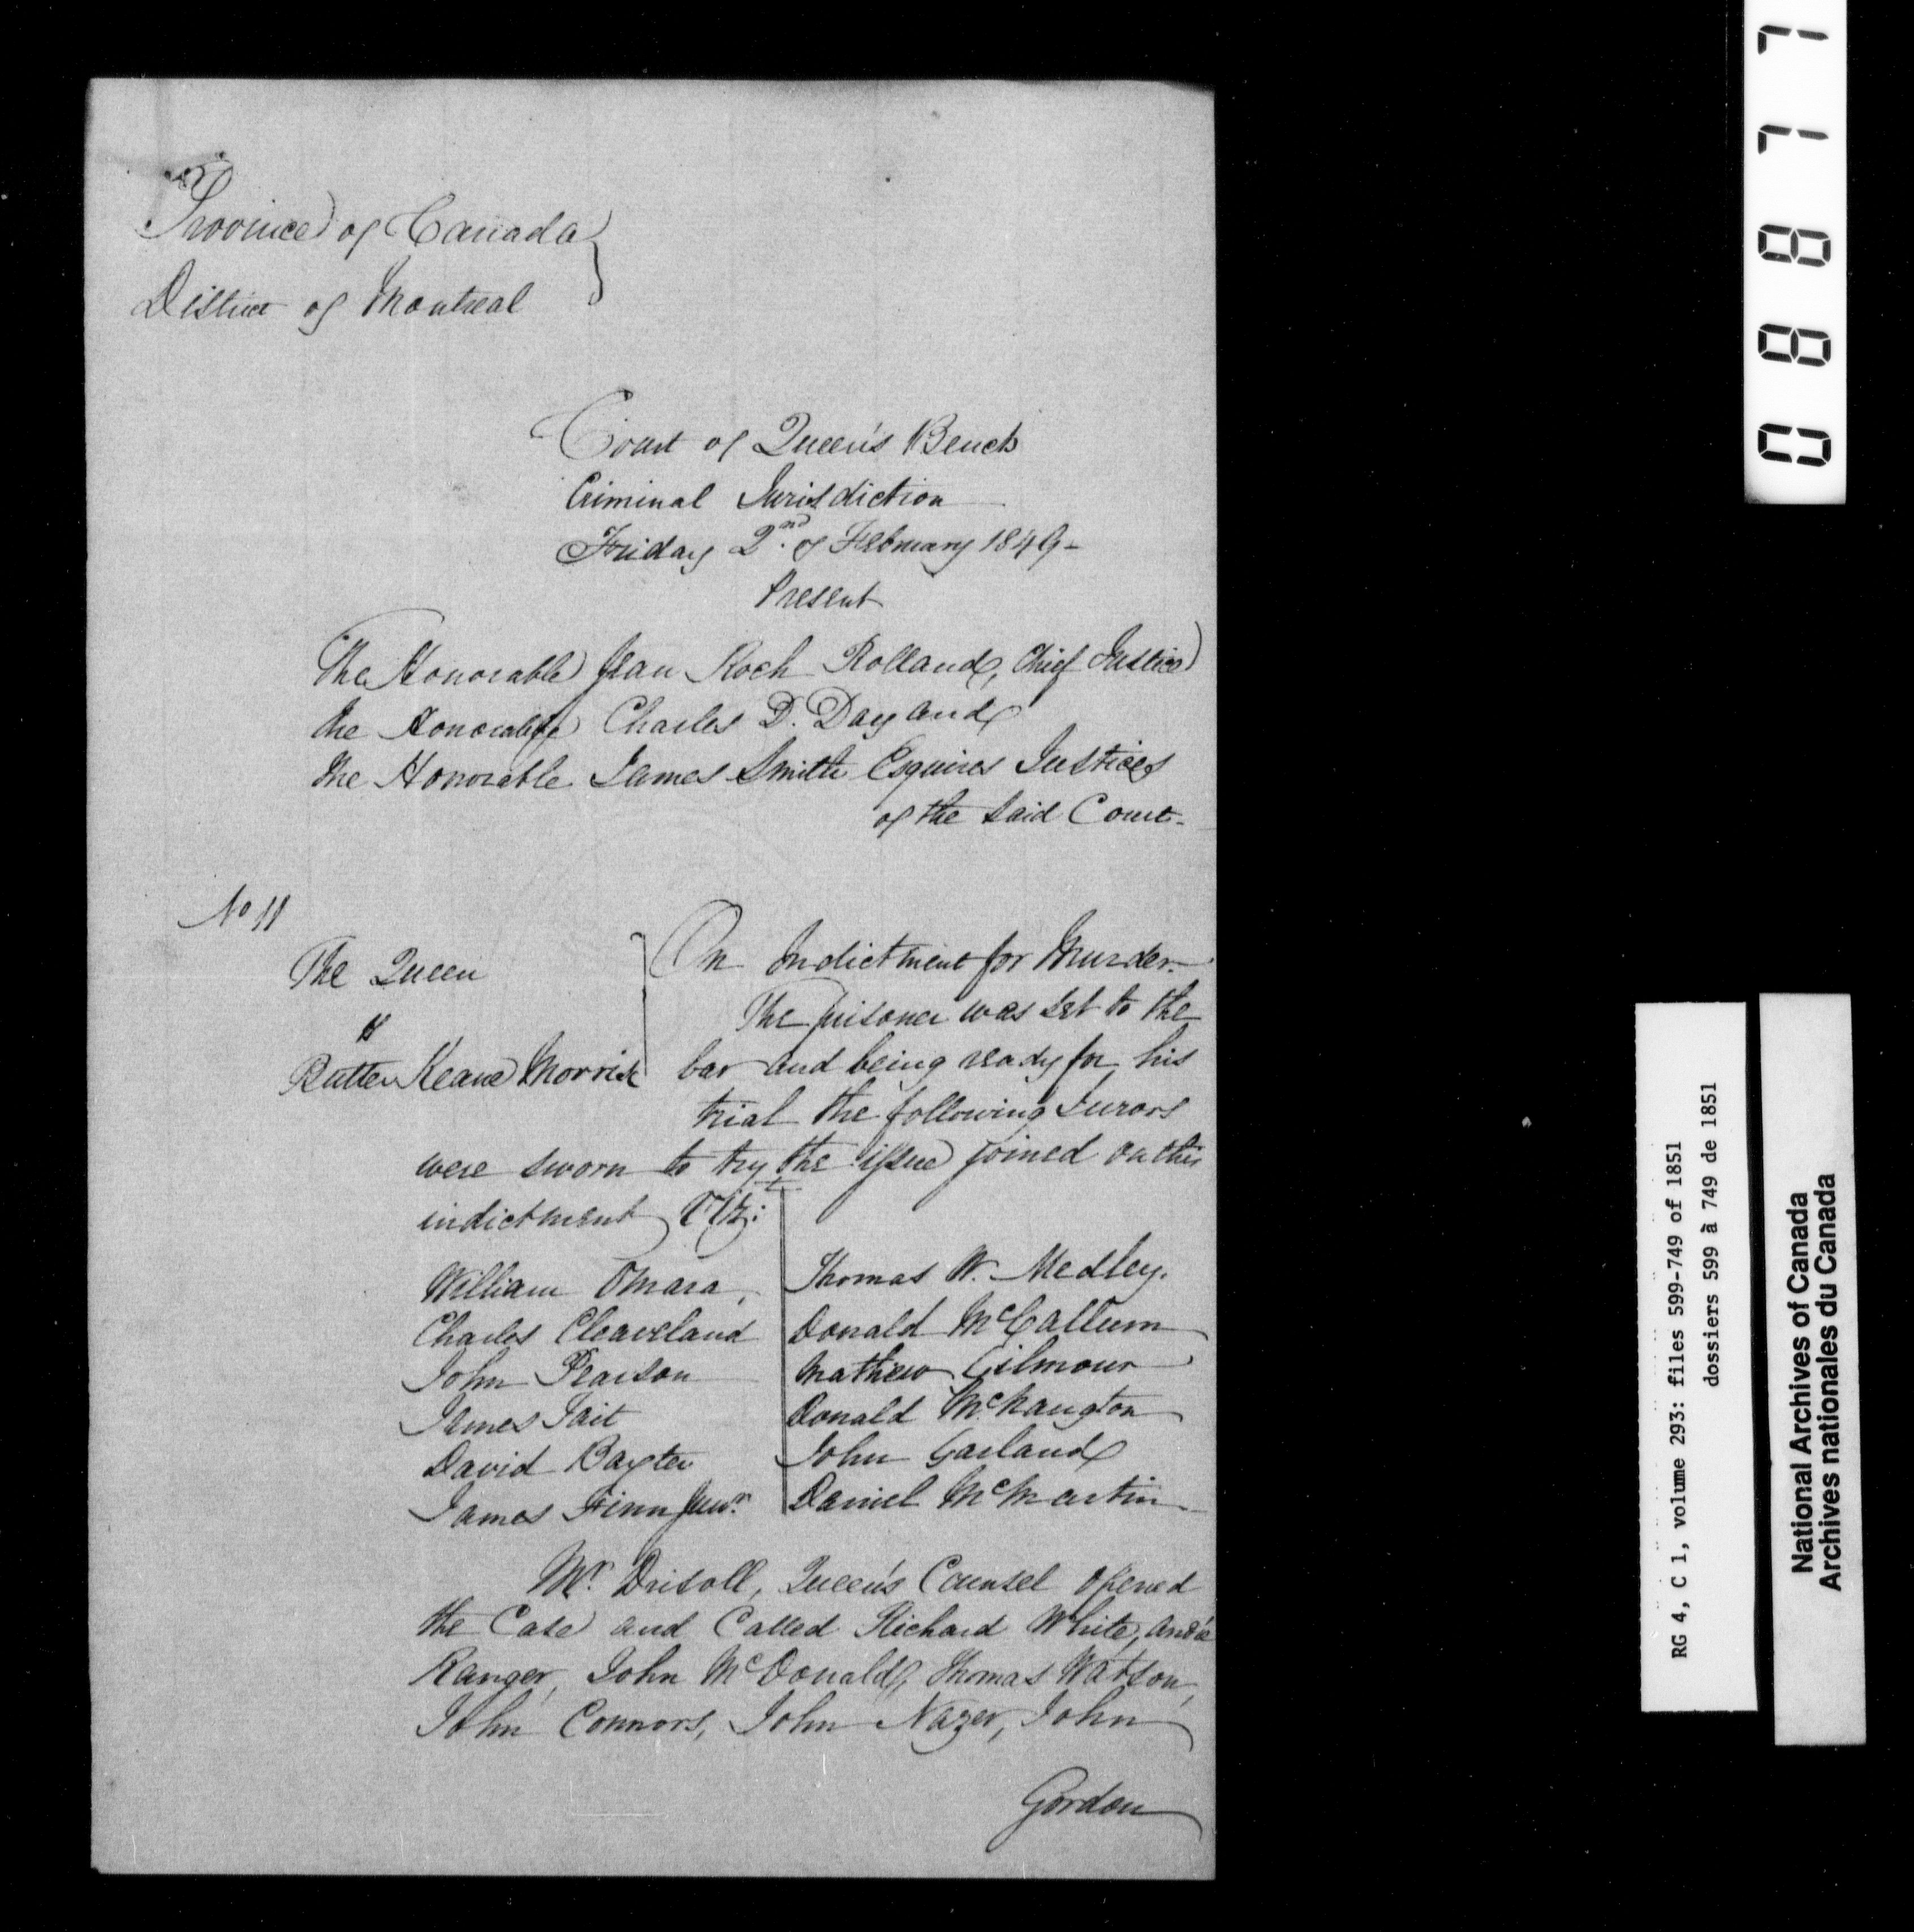 Province of Canada
District of Montreal
Court of Queen's Bench
Criminal Jurisdiction
Friday 2nd. of February 1849 -
Present
The Honorable Jean Roch Rolland, Chief Justice
the Honorable Charles D. Day and
the Honorable James Smith Esquires Justices
of the said Court -
No 11
The Queen
vs
Rutter Keane Morris
On Indictment for Murder -
The prisoner was set to the
bar and being ready for his
trial the following Jurors
were sworn to try the issue joined on this
indictment Viz:
William Omara,
Charles Cleaveland
John Pearson
James Tait
David Baxter
James Finn Junr.
Thomas W. Medley.
Donald McCallum
Mathew Gilmour
Donald McNaugton
John Garland
Daniel McMartin
Mr. Drisoll, Queen's Counsel opened
the Case and Called Richard White, André
Ranger, John McDonald, Thomas Watson,
John Connors, John Nazer, John
Gordon
08877
RG 4, C 1, volume 293: files 599-749 of 1851
dossiers 599 à 749 de 1851
National Archives of Canada
Archives nationales du Canada